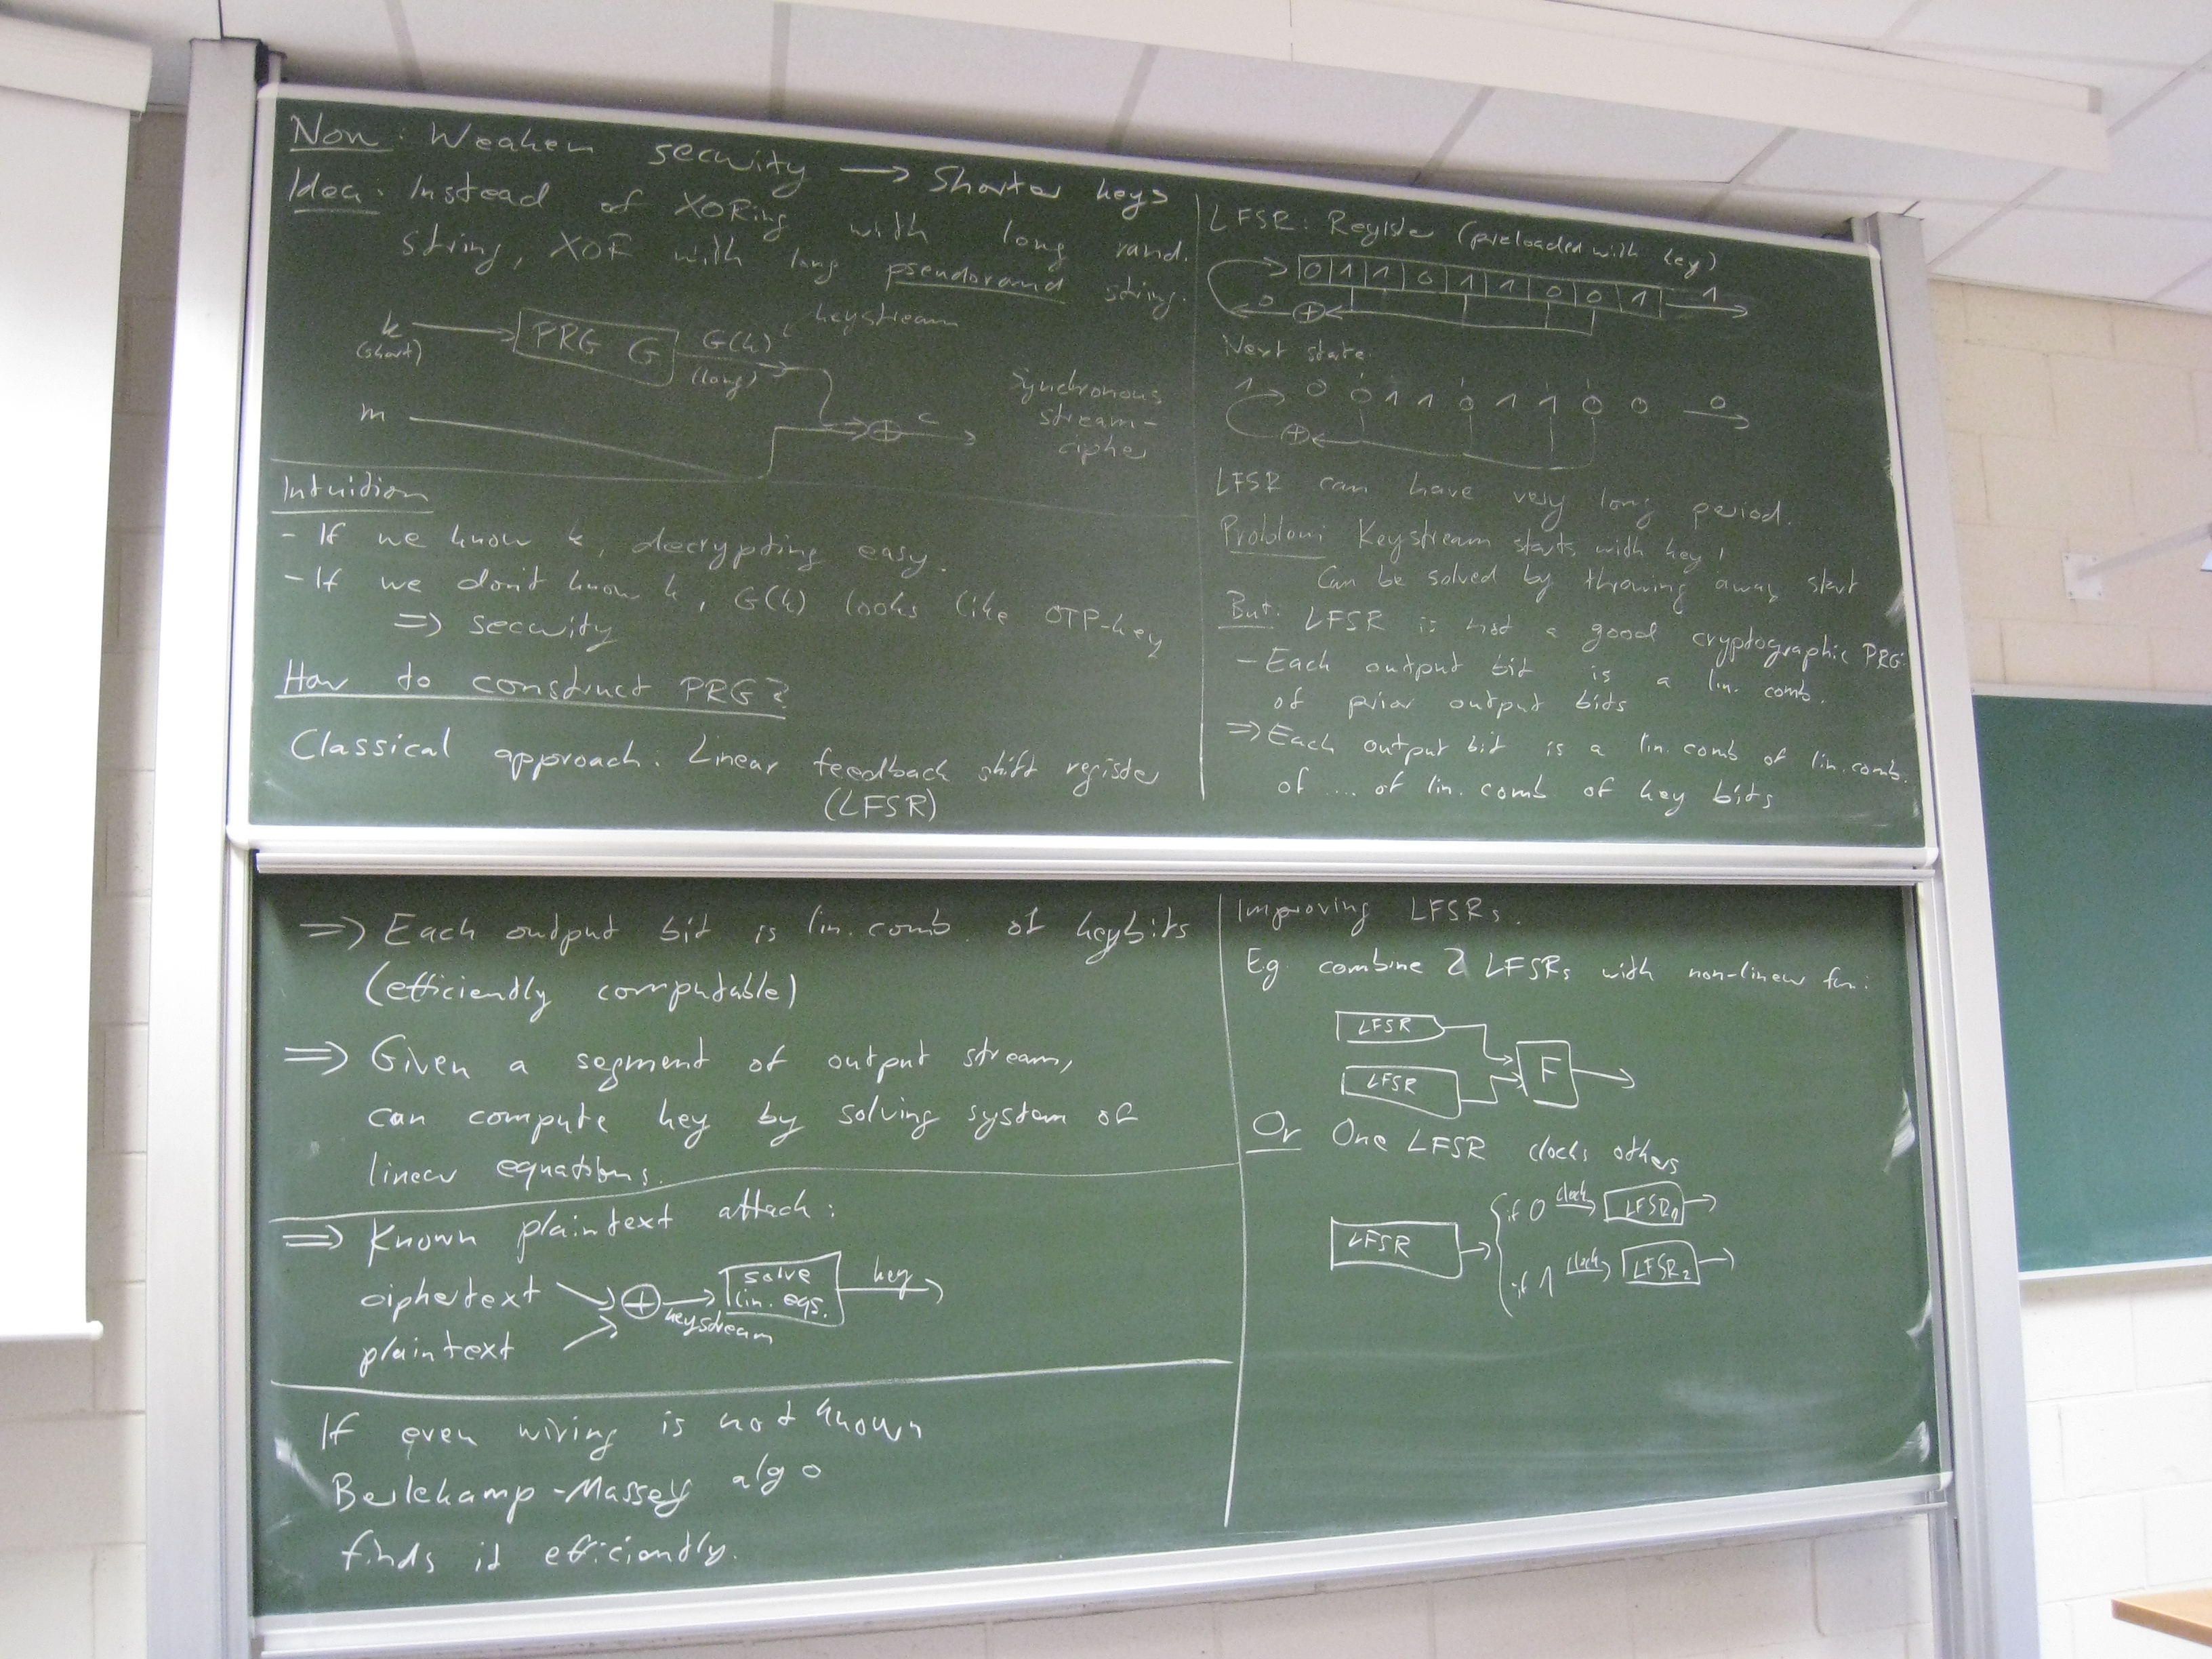 Now: Weaken security → Shorter keys
Idea: Instead of XORing with long rand.
string, XOR with long pseudorand string.
k (short) → PRG G G(k) (long) keystream
m ⊕ c
Synchronous
stream-
cipher
Intuition
- If we know k, decrypting easy.
- If we don't know k, G(k) looks like OTP-key
⇒ security
How to construct PRG?
Classical approach: Linear feedback shift register
(LFSR)
LFSR: Register (preloaded with key)
0 1 1 0 1 1 0 0 1 → 1
0 ⊕
Next state:
1 0 0 1 1 0 1 1 0 0 → 0
⊕
LFSR can have very long period.
Problem: Keystream starts with key!
Can be solved by throwing away start
But: LFSR is not a good cryptographic PRG:
- Each output bit is a lin. comb.
of prior output bits
⇒ Each output bit is a lin. comb of lin. comb.
of .... of lin. comb of key bits
⇒ Each output bit is lin. comb. of keybits
(efficiently computable)
⇒ Given a segment of output stream,
can compute key by solving system of
linear equations.
⇒ Known plaintext attack:
ciphertext
plaintext
⊕ → keystream
solve
lin. eqs.
key
If even wiring is not known
Berlekamp-Massey algo
finds it efficiently.
Improving LFSRs.
Eg. combine 2 LFSRs with non-linear fun:
LFSR
LFSR
F
Or One LFSR clocks others
LFSR
if 0 clock LFSR1
if 1 clock LFSR2